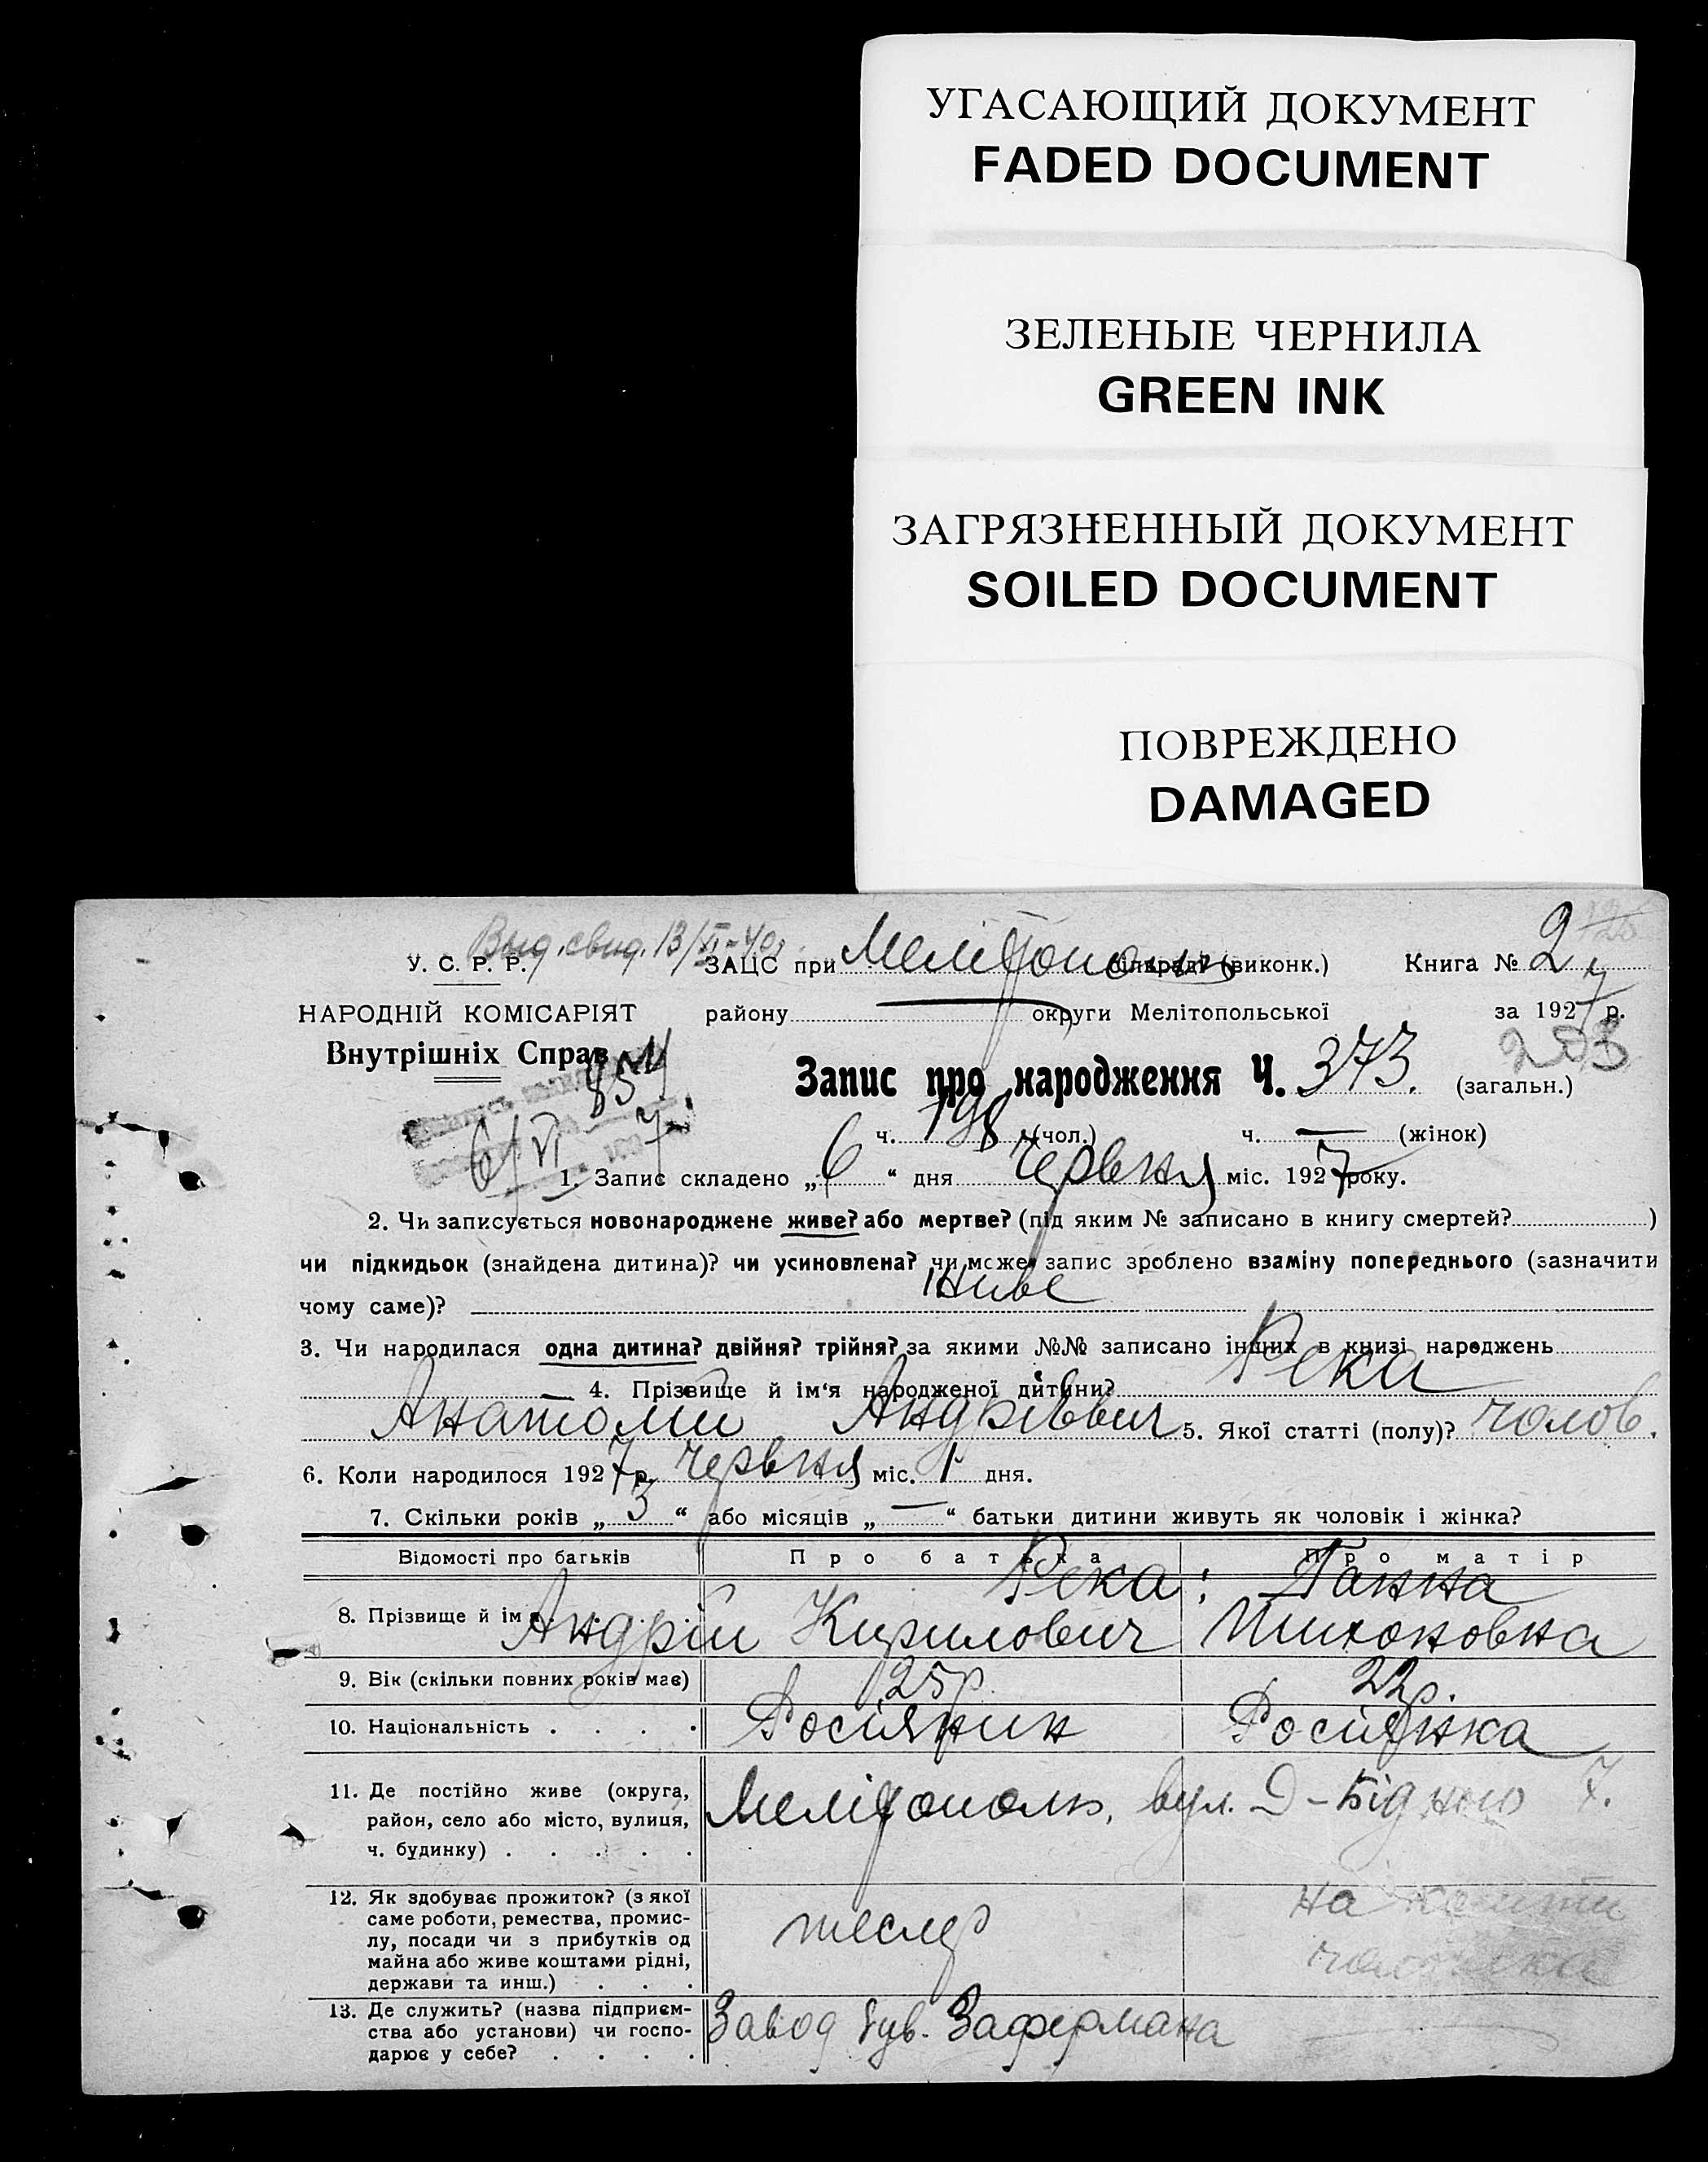 УГАСАЮЩИЙ ДОКУМЕНТ
FADED DOCUMENT
ЗЕЛЕНЫЕ ЧЕРНИЛА
GREEN INK
ЗАГРЯЗНЕННЫЙ ДОКУМЕНТ
SOILED DOCUMENT
ПОВРЕЖДЕНО
DAMAGED
Выд. свид. 13/
У. С. Р. Р. ЗАЦС при Мелітополь сільраді (виконк.) Книга № 2
НАРОДНІЙ КОМІСАРІЯТ району — округи Мелітопольської за 1927 р.
Внутрішніх Справ
Запис про народження Ч. 373. (загальн.)
203
ч. 198 (чол.) ч. — (жінок)
6/VI 7
1. Запис складено „6“ дня Червня міс. 1927 року.
2. Чи записується новонароджене живе? або мертве? (під яким № записано в книгу смертей? )
чи підкидьок (знайдена дитина)? чи усиновлена? чи може запис зроблено взаміну попереднього (зазначити
чому саме)? Живе
3. Чи народилася одна дитина? двійня? трійня? за якими №№ записано інших в книзі народжень
— 4. Прізвище й ім‘я народженої дитини? Река
Анатолій Андрієвич 5. Якої статті (полу)? чолов.
6. Коли народилося 1927 р. Червня міс. 1 дня.
7. Скільки років „3“ або місяців „—“ батьки дитини живуть як чоловік і жінка?
Відомості про батьків Про батька Про матір
8. Прізвище й ім‘я . . . . Река: Ганна
Андрій Кирилович Тихоновна
9. Вік (скільки повних років має) 25р. 22р.
10. Національність . . . . Росіянин Росіянка
11. Де постійно живе (округа,
район, село або місто, вулиця,
ч. будинку) . . . . .
Мелітополь, вул. Д-Бідного 7.
12. Як здобуває прожиток? (з якої
саме роботи, ремества, промис-
лу, посади чи з прибутків од
майна або живе коштами рідні,
держави та инш.) . . .
тесляр на кошти
чоловіка
13. Де служить? (назва підприєм-
ства або установи) чи госпо-
дарює у себе? . . . .
Завод був. Зафермана